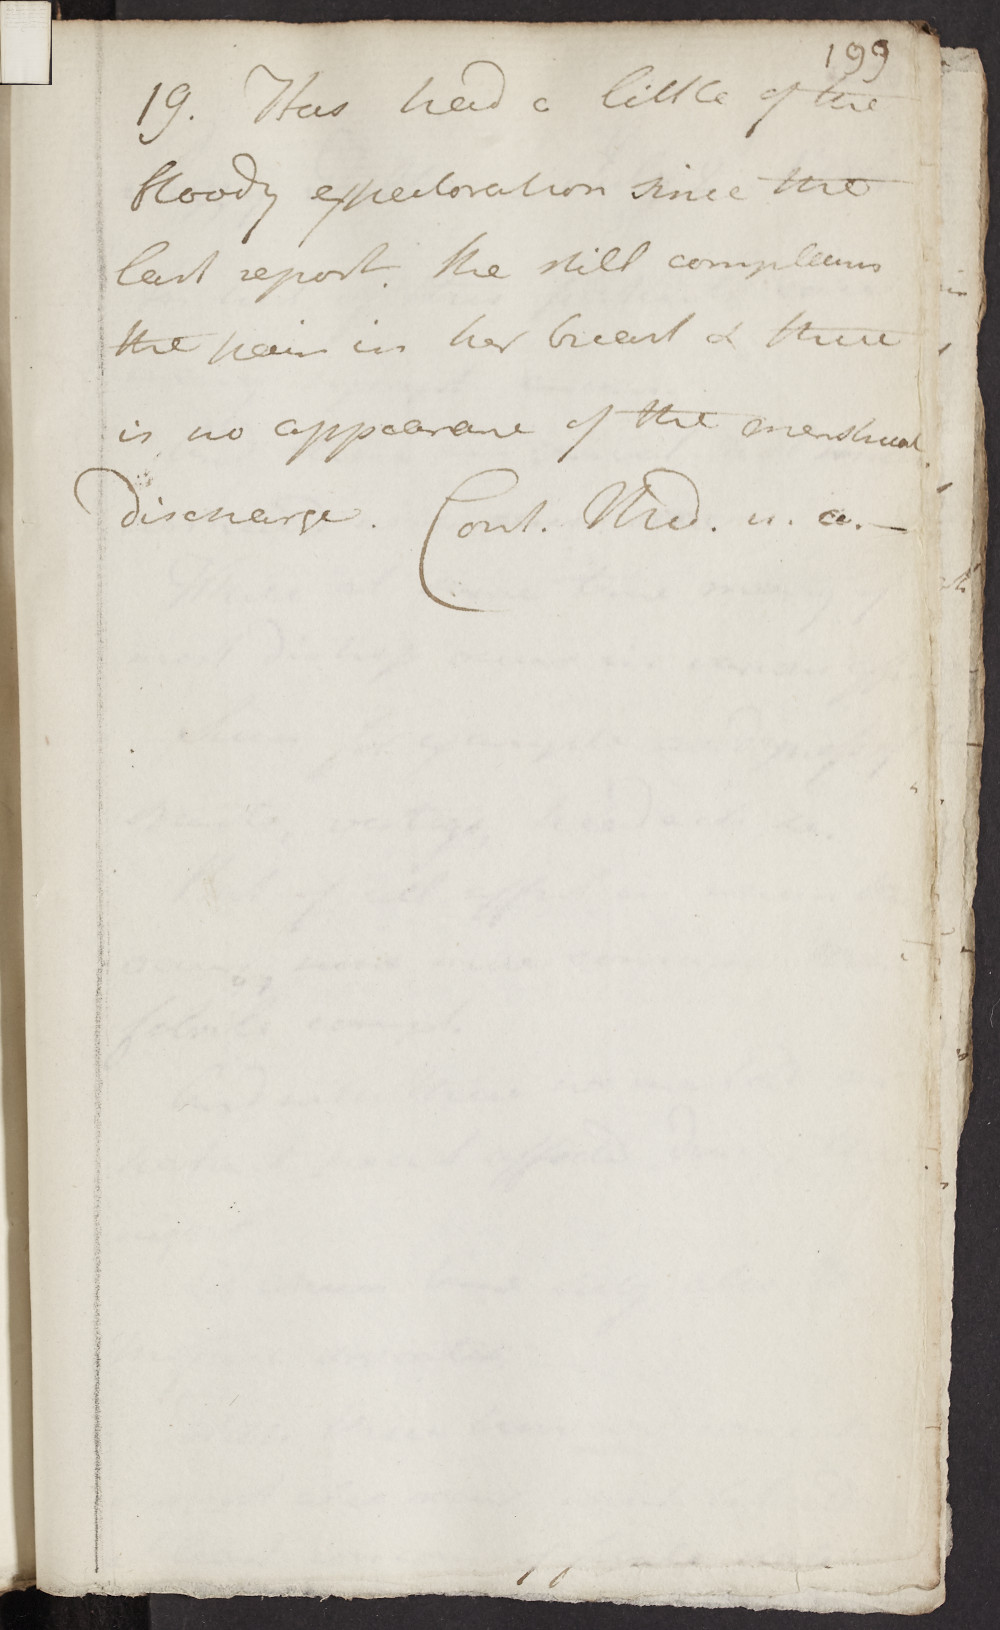 199
19. Has had a little of the
bloody expectoration since the
last report. She still complains
the pain in her breast & there
is no appearance of the menstrual
discharge. Cont. Med. u. a.